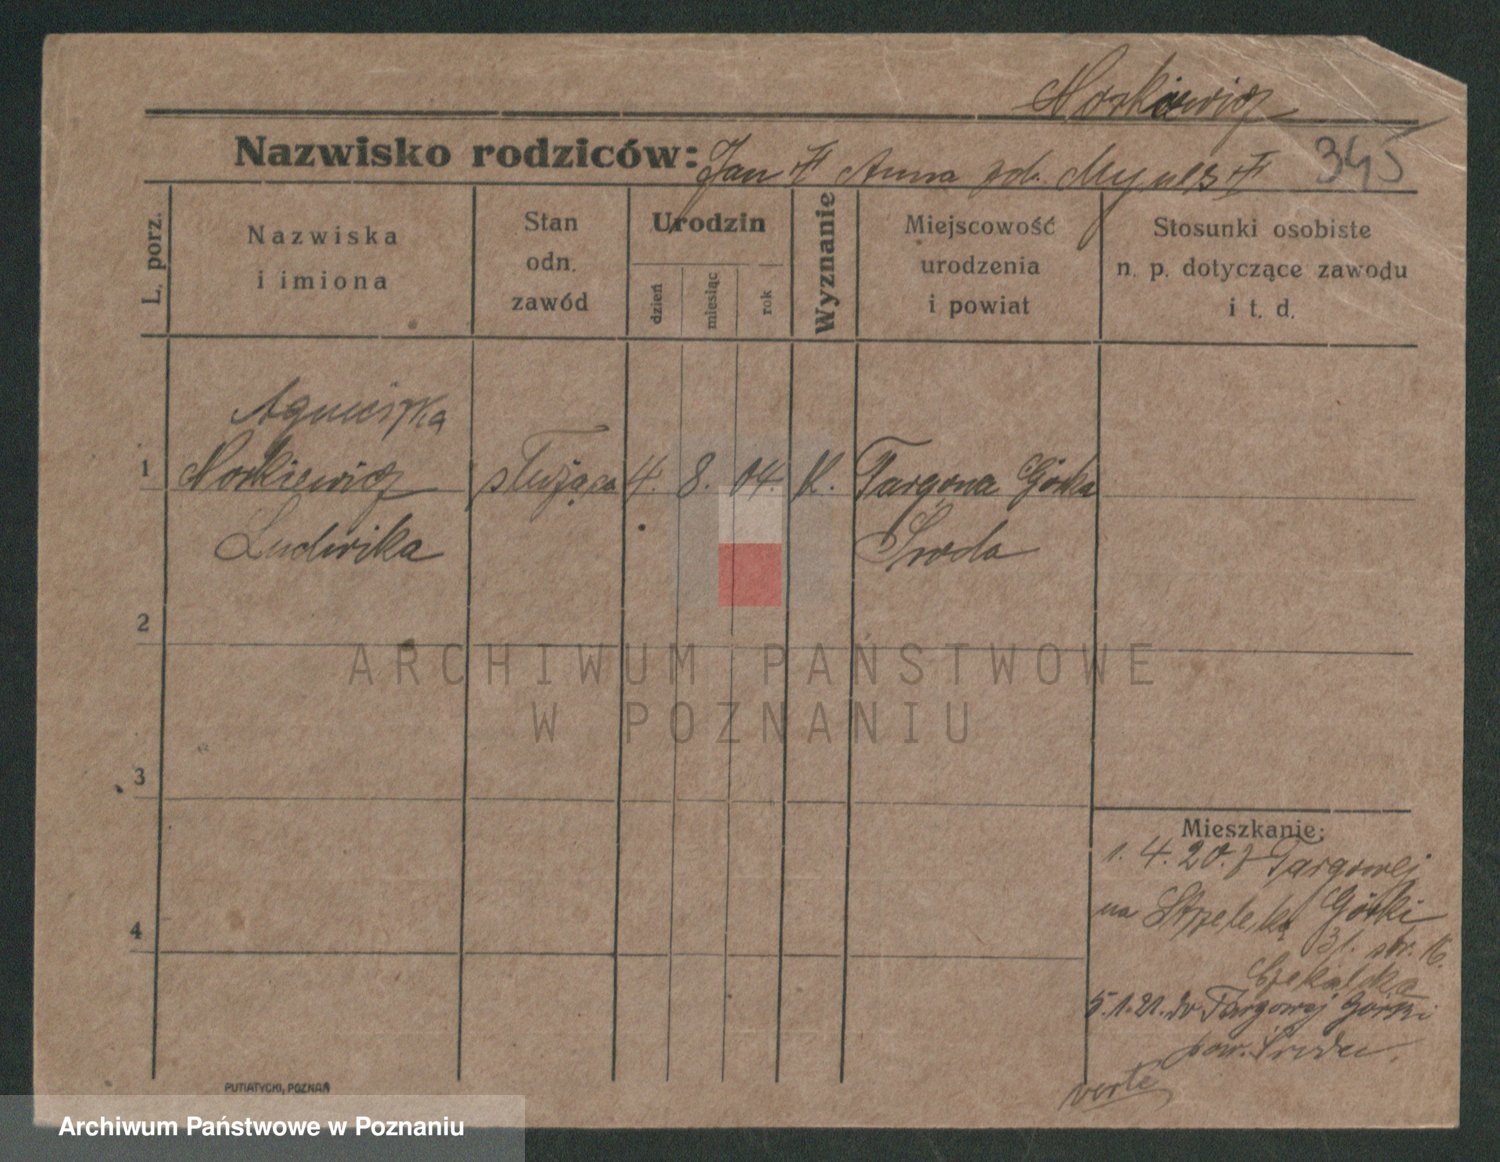 Norkiewicz
Nazwisko rodziców: Jan # Anna zd. #
345
L. porz.
Nazwiska
i imiona
Stan
odn.
zawód
Urodzin
dzień
miesiąc
rok
Wyznanie
Miejscowość
urodzenia
i powiat
Stosunki osobiste
n. p. dotyczące zawodu
i t. d.
Agnieszka
1 Norkiewicz służąca 4. 8. 04. K. Targowa Górka
Ludwika Środa
2
3
4
Mieszkanie:
1. 4. 20. z Targowej
na Strzelecką Górki
31. str. 16.
Czekalska
5.1.21. do Targowej Górki
pow. Środa.
verte
PUTIATYCKI, POZNAŃ
ARCHIWUM PAŃSTWOWE
W POZNANIU
Archiwum Państwowe w Poznaniu